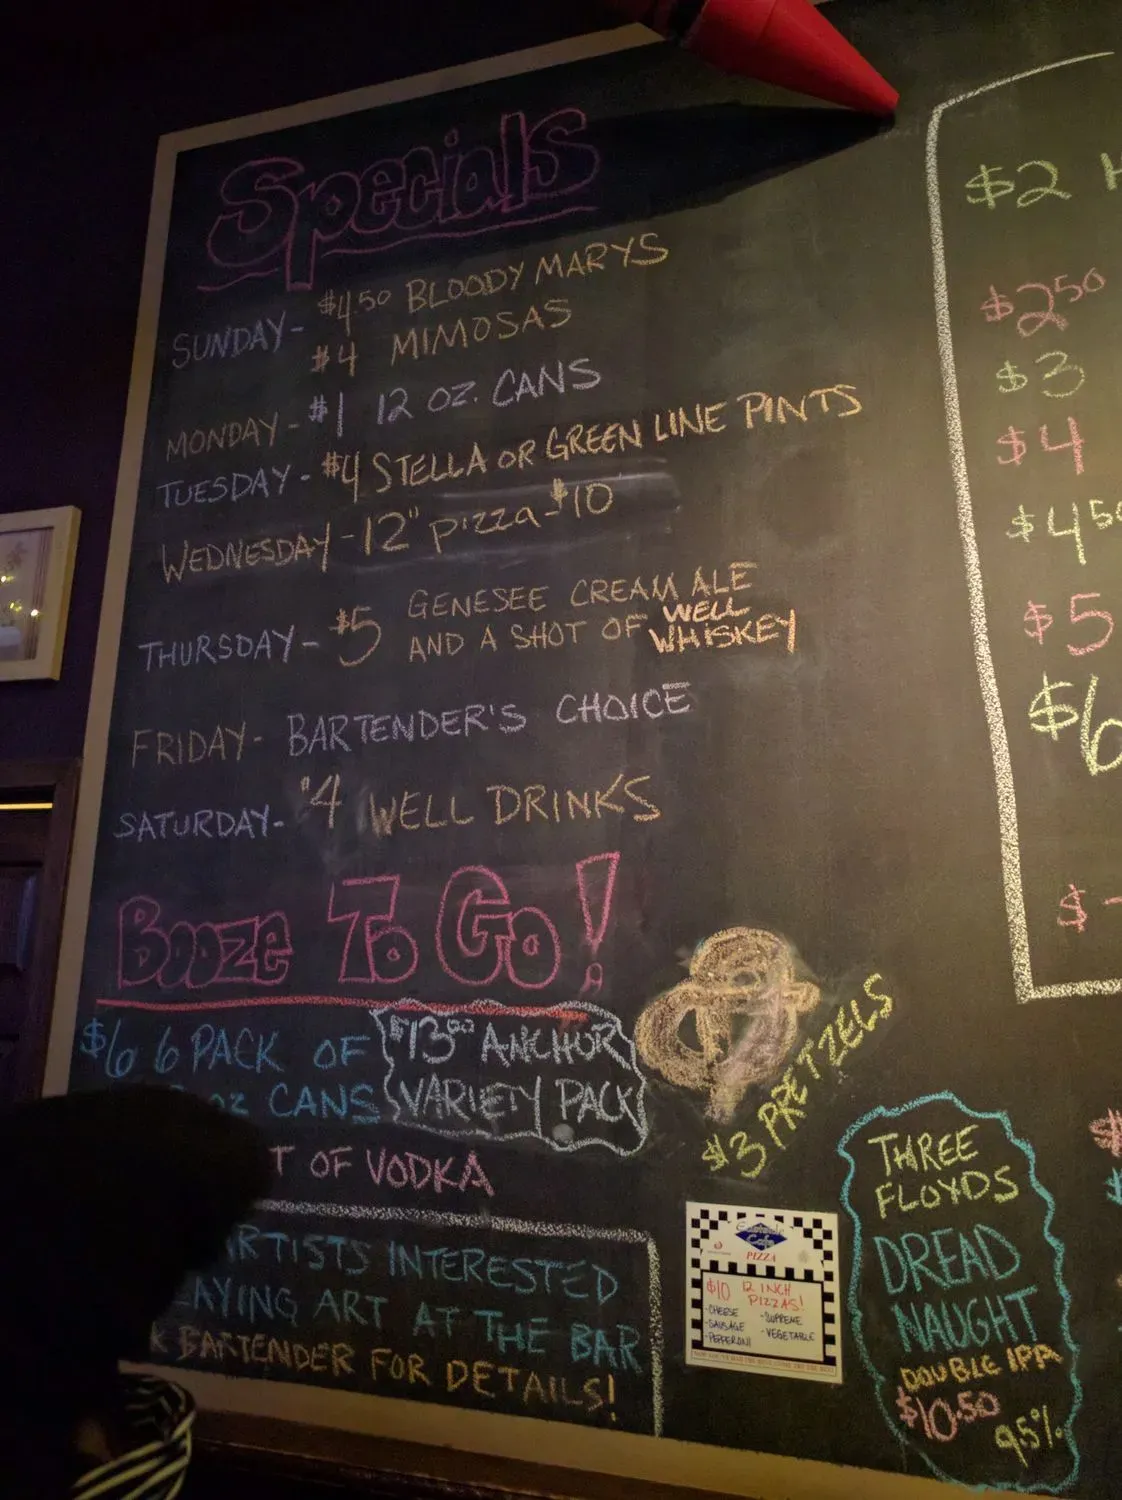 Specials
SUNDAY- $4.50 BLOODY MARYS
$4 MIMOSAS
MONDAY- $1 12 OZ. CANS
TUESDAY- $4 STELLA OR GREEN LINE PINTS
WEDNESDAY- 12" pizza- $10
THURSDAY- $5 GENESEE CREAM ALE
AND A SHOT OF WELL
WHISKEY
FRIDAY- BARTENDER'S CHOICE
SATURDAY- $4 WELL DRINKS
Booze To Go!
$6 6 PACK OF
OZ CANS
$13.00 ANCHOR
VARIETY PACK
T OF VODKA
RTISTS INTERESTED
AYING ART AT THE BAR
K BARTENDER FOR DETAILS!
$3 PRETZELS
Cafe
PIZZA
$10 12 INCH
PIZZAS!
-CHEESE -SUPREME
-SAUSAGE -VEGETABLE
-PEPPERONI
THREE
FLOYDS
DREAD
NAUGHT
DOUBLE IPA
$10.50
9.5%
$2 H
$2.50
$3
$4
$4.50
$5
$6
$